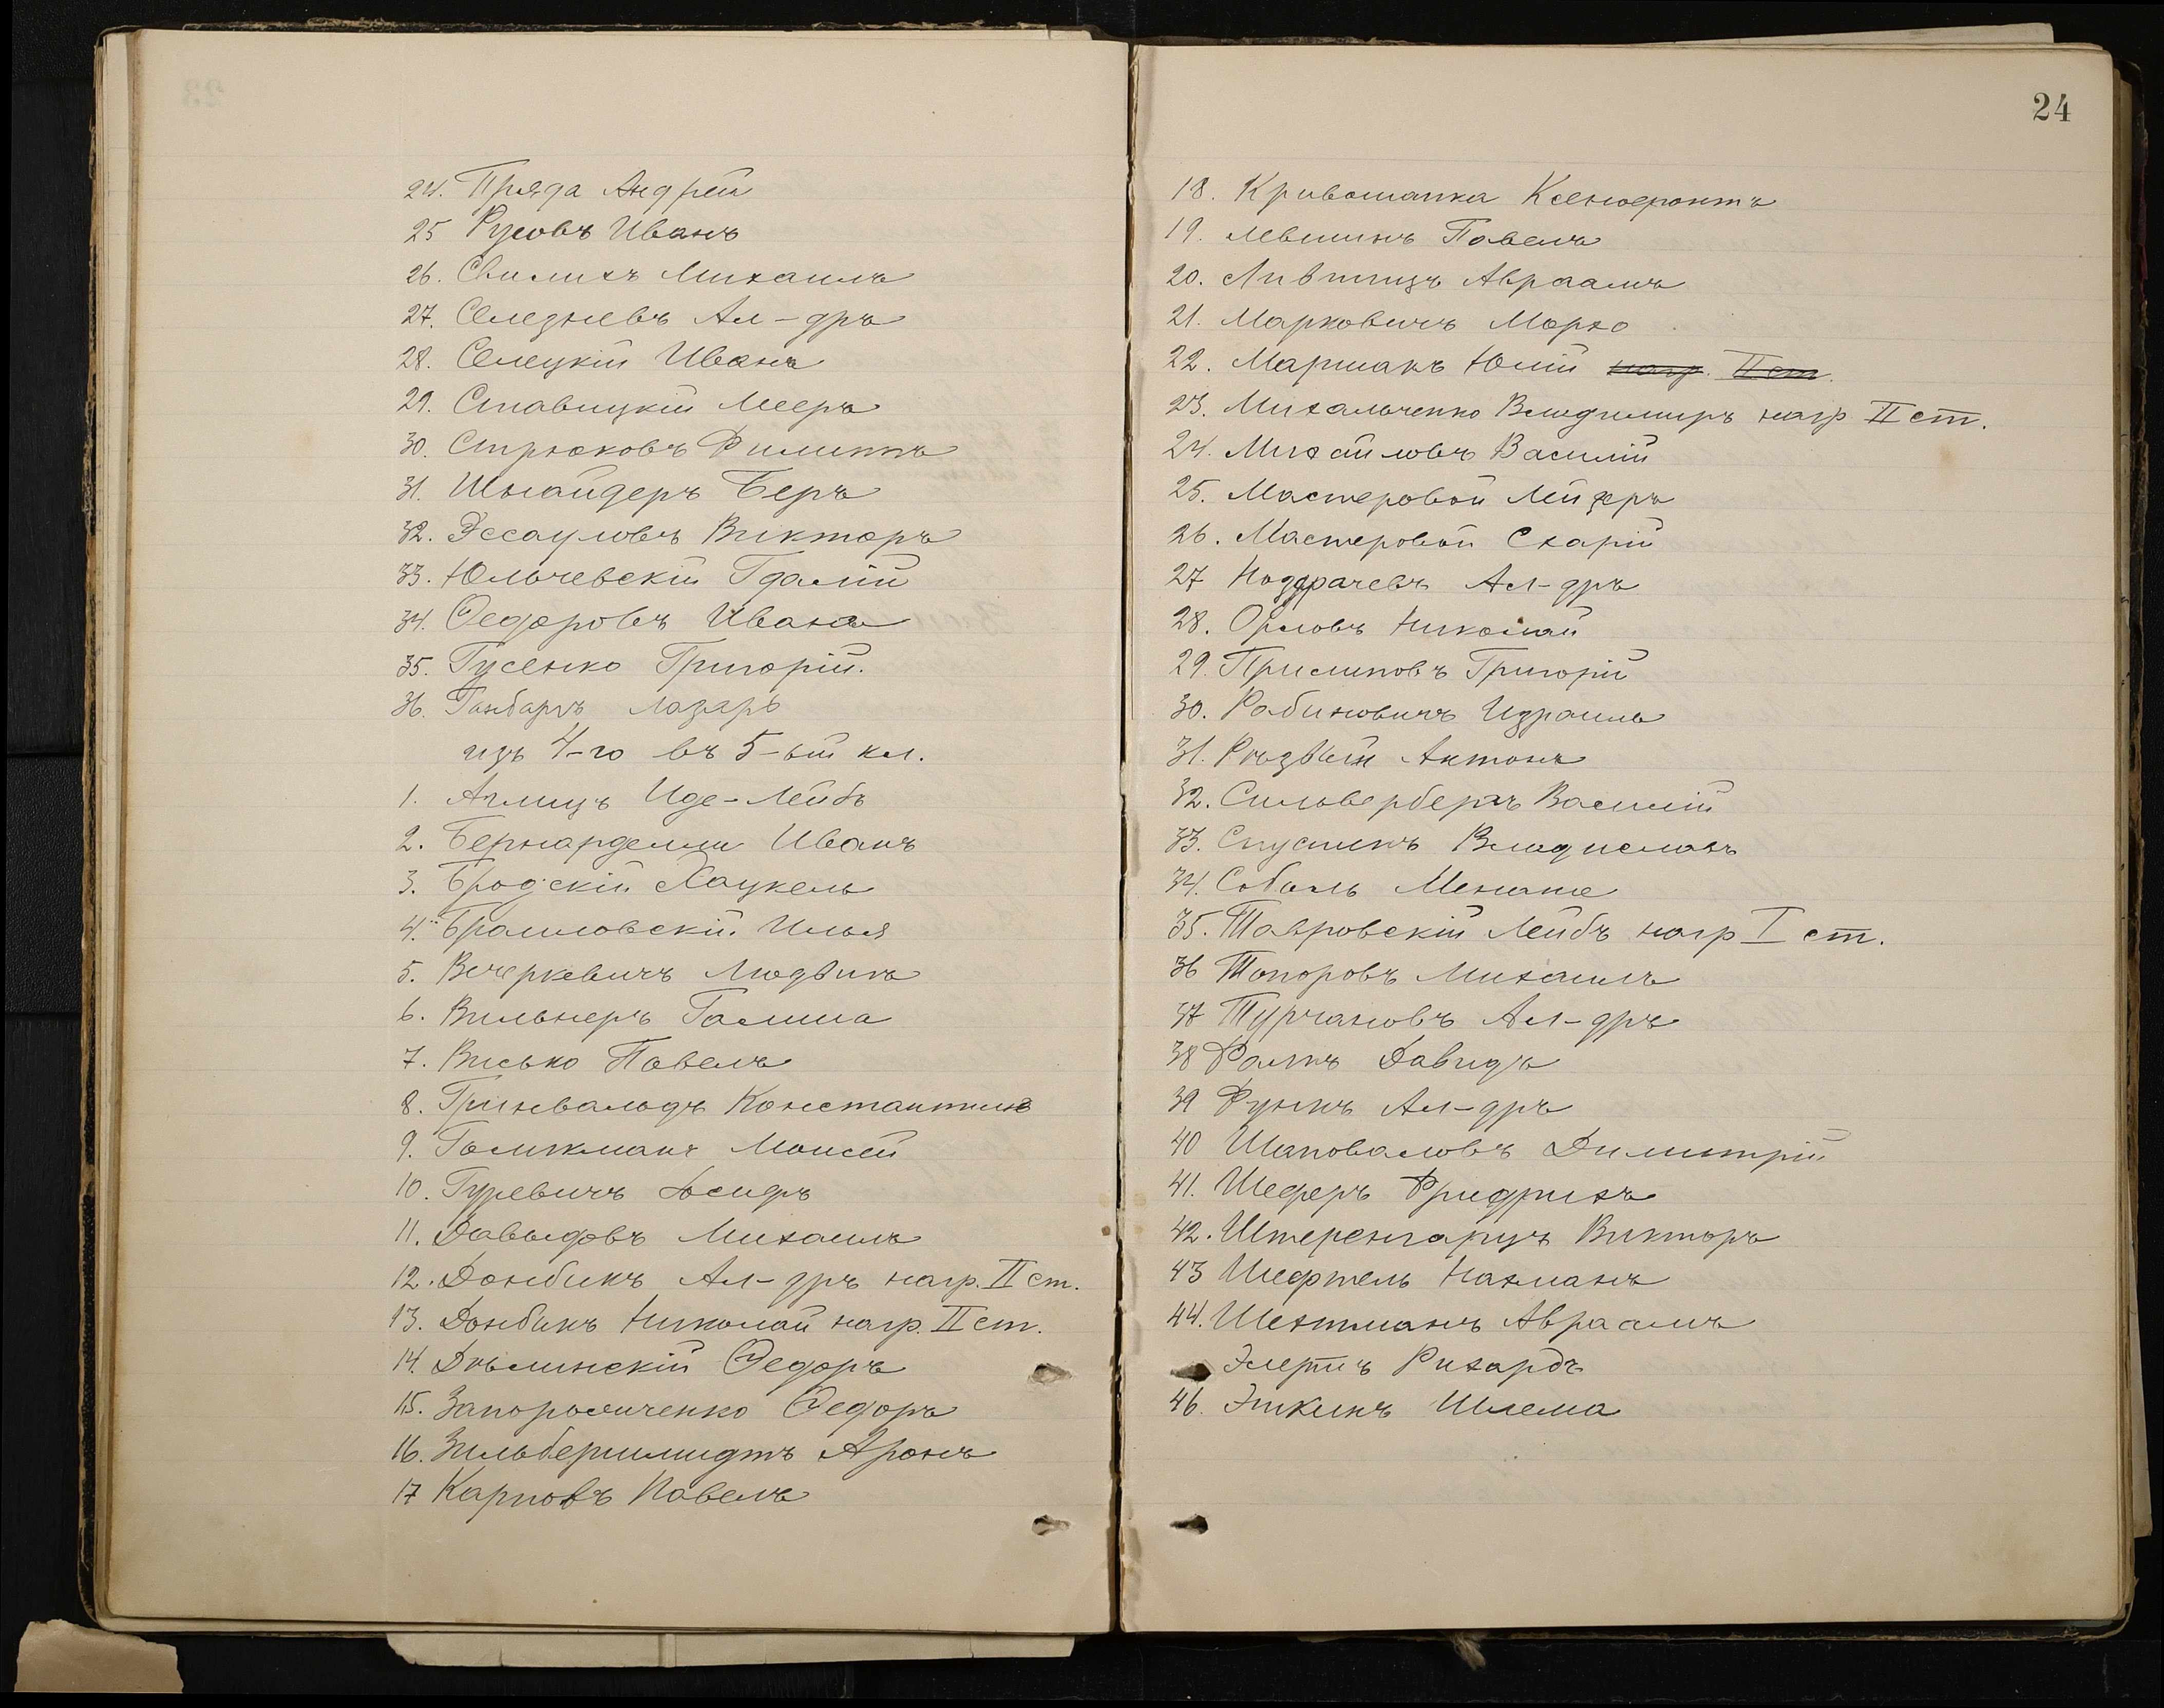 24. Пряда Андрей
25 Русовъ Иванъ
26. Свилихъ Михаилъ
27. Селезневъ Ал-дръ
28. Селецкій Иванъ
29. Ставицкій Мееръ
30. Стрюковъ Филиппъ
31. Шнайдеръ Беръ
32. Эссауловъ Викторъ
33. Юльчевскій Гдалій
34. Ѳедоровъ Иванъ
35. Гусенко Григорій.
36. Ганбаргъ Лазарь
изъ 4-го въ 5-ый кл.
1. Аглицъ Иде-Лейбъ
2. Бернарделли Иванъ
3. Бродскій Хацкель
4. Браиловскій Илья
5. Вечеркевичъ Людвигъ
6. Вильнеръ Галина
7. Висько Павелъ
8. Гринвальдъ Константинъ
9. Гольткманъ Моисей
10. Гуревичъ Іосифъ
11. Давыдовъ Михаилъ
12. Донбикъ Ал-дръ нагр. II ст.
13. Донбикъ Николай нагр. II ст.
14. Дѣлинскій Ѳедоръ
15. Запорожченко Ѳедоръ
16. Зильбершмидтъ Аронъ
17 Карповъ Павелъ
24
18. Кривошапка Ксенофонтъ
19. Левшинъ Павелъ
20. Лившицъ Авраамъ
21. Марковичъ Марко
22. Маршакъ Юлій нагр. II ст.
23. Михальченко Владимиръ нагр II ст.
24. Михайловъ Василій
25. Мастеровой Лейзеръ
26. Мастеровой Схарій
27 Ноздрачевъ Ал-дръ
28. Орловъ Николай
29. Прилиповъ Григорій
30. Рабиновичъ Израиль
31. Рѣзвый Антонъ
32. Сильвербергъ Василій
33. Спусликъ Владиславъ
34. Соболь Менаше
35. Тавровскій Лейбъ нагр I ст.
36 Топоровъ Михаилъ
37 Турчановъ Ал-дръ
38 Фалкъ Давидъ
39 Функъ Ал-дръ
40 Шаповаловъ Димитрій
41. Шеферъ Фридрихъ
42. Штеренгарцъ Викторъ
43 Шефтель Нахманъ
44. Шехтманъ Авраамъ
Элертъ Рихардъ
46. Эткинъ Шлема